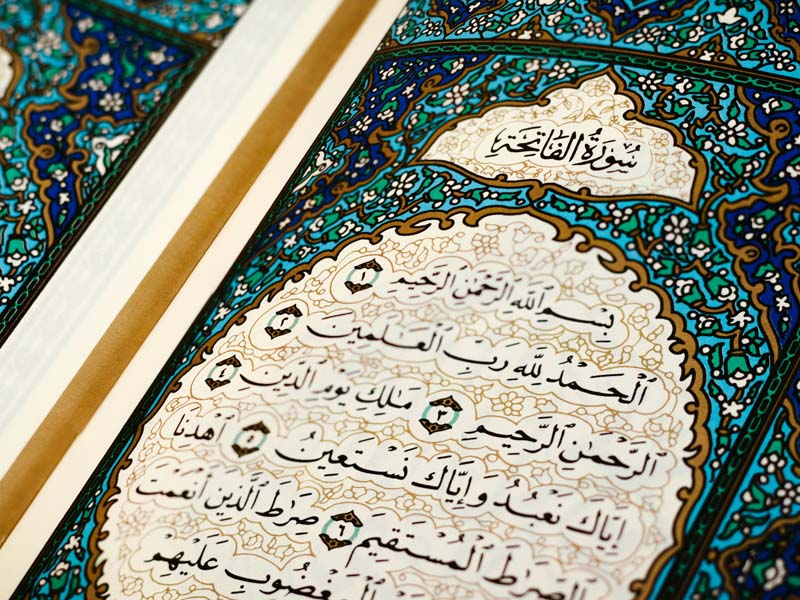 سُورَةُ الفَاتِحَةِ
بِسْمِ ٱللَّهِ ٱلرَّحْمَٰنِ ٱلرَّحِيمِ ١
ٱلْحَمْدُ لِلَّهِ رَبِّ ٱلْعَٰلَمِينَ ٢
ٱلرَّحْمَٰنِ ٱلرَّحِيمِ ٣ مَٰلِكِ يَوْمِ ٱلدِّينِ ٤
إِيَّاكَ نَعْبُدُ وَإِيَّاكَ نَسْتَعِينُ ٥ ٱهْدِنَا
ٱلصِّرَٰطَ ٱلْمُسْتَقِيمَ ٦ صِرَٰطَ ٱلَّذِينَ أَنْعَمْتَ
ٱلْمَغْضُوبِ عَلَيْهِمْ